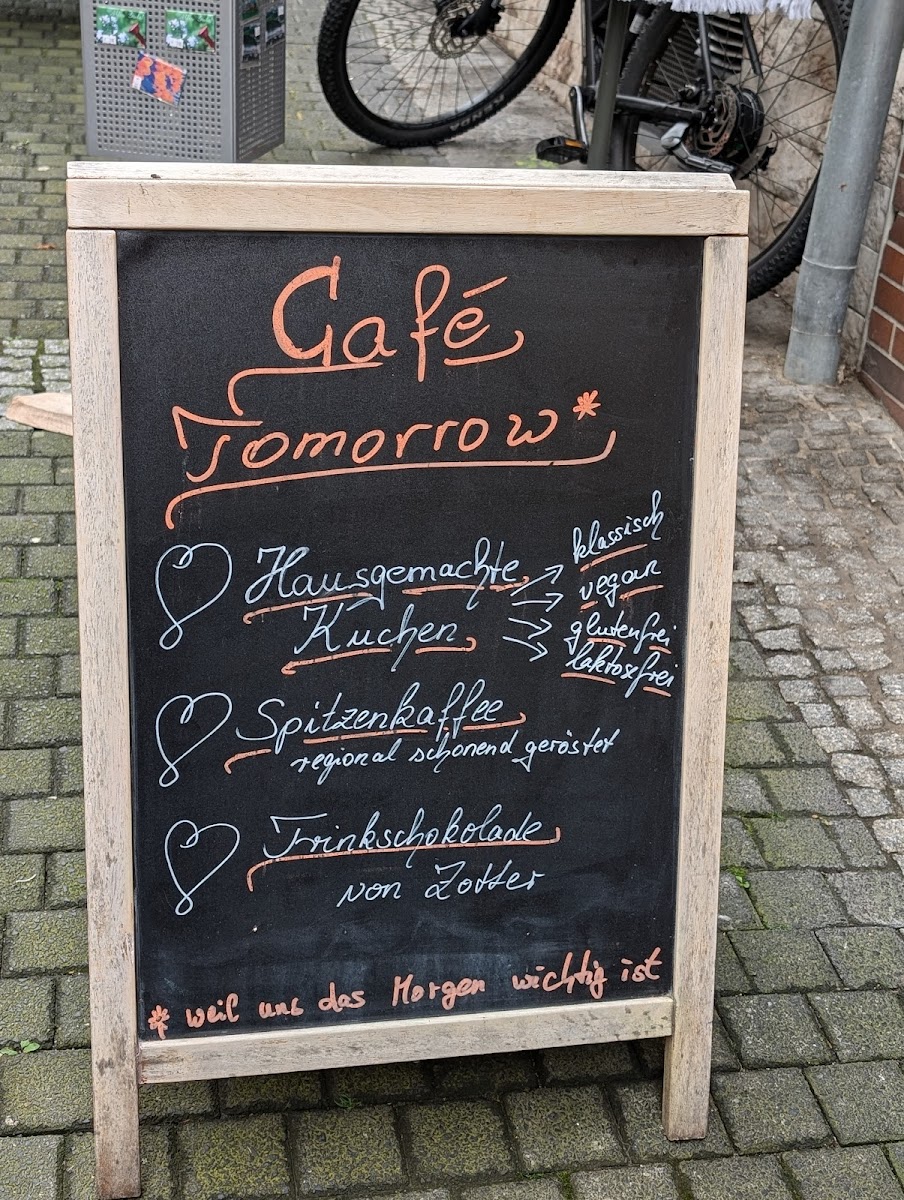 Café
Tomorrow*
Hausgemachte
Kuchen
klassisch
vegan
glutenfrei
laktosefrei
Spitzenkaffee
regional schonend geröstet
Trinkschokolade
von Zotter
* weil uns das Morgen wichtig ist